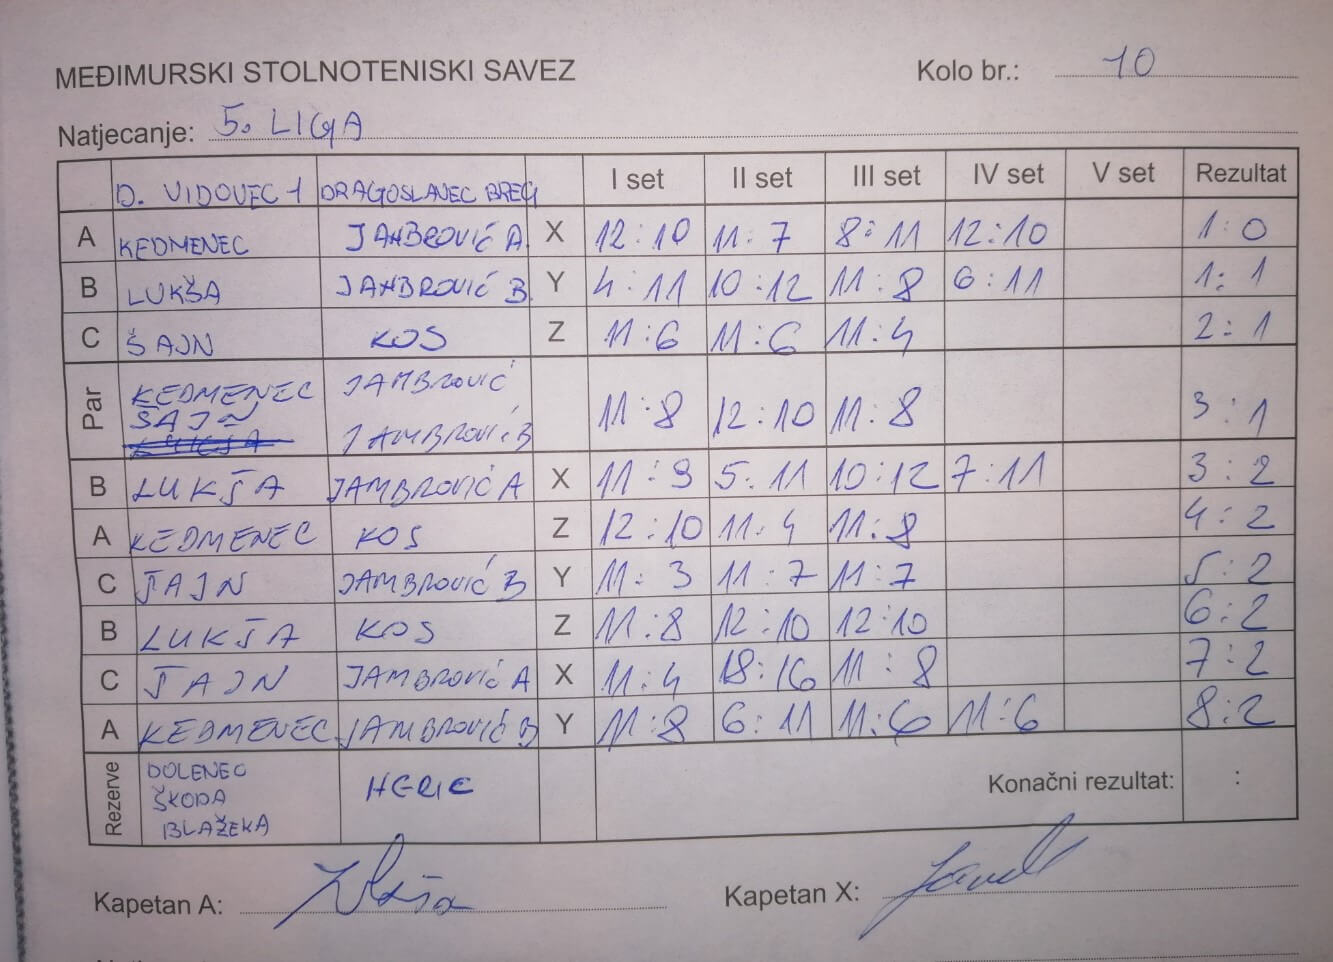 MEĐIMURSKI STOLNOTENISKI SAVEZ Kolo br.: 10
Natjecanje: 5. LIGA
D. VIDOVEC 1 DRAGOSLAVEC BREG I set II set III set IV set V set Rezultat
A KEDMENEC JAMBROVIĆ A X 12:10 11:7 8:11 12:10 1:0
B LUKŠA JAMBROVIĆ B Y 4:11 10:12 11:8 6:11 1:1
C ŠAJN KOS Z 11:6 11:6 11:4 2:1
Par KEDMENEC ŠAJN JAMBROVIĆ JAMBROVIĆ B 11:8 12:10 11:8 3:1
B LUKŠA JAMBROVIĆ A X 11:9 5:11 10:12 7:11 3:2
A KEDMENEC KOS Z 12:10 11:4 11:8 4:2
C ŠAJN JAMBROVIĆ B Y 11:3 11:7 11:7 5:2
B LUKŠA KOS Z 11:8 12:10 12:10 6:2
C ŠAJN JAMBROVIĆ A X 11:4 18:16 11:8 7:2
A KEDMENEC JAMBROVIĆ B Y 11:8 6:11 11:6 11:6 8:2
Rezerve DOLENEC HERIC Konačni rezultat: :
ŠKODA
BLAŽEKA
Kapetan A: Kapetan X: